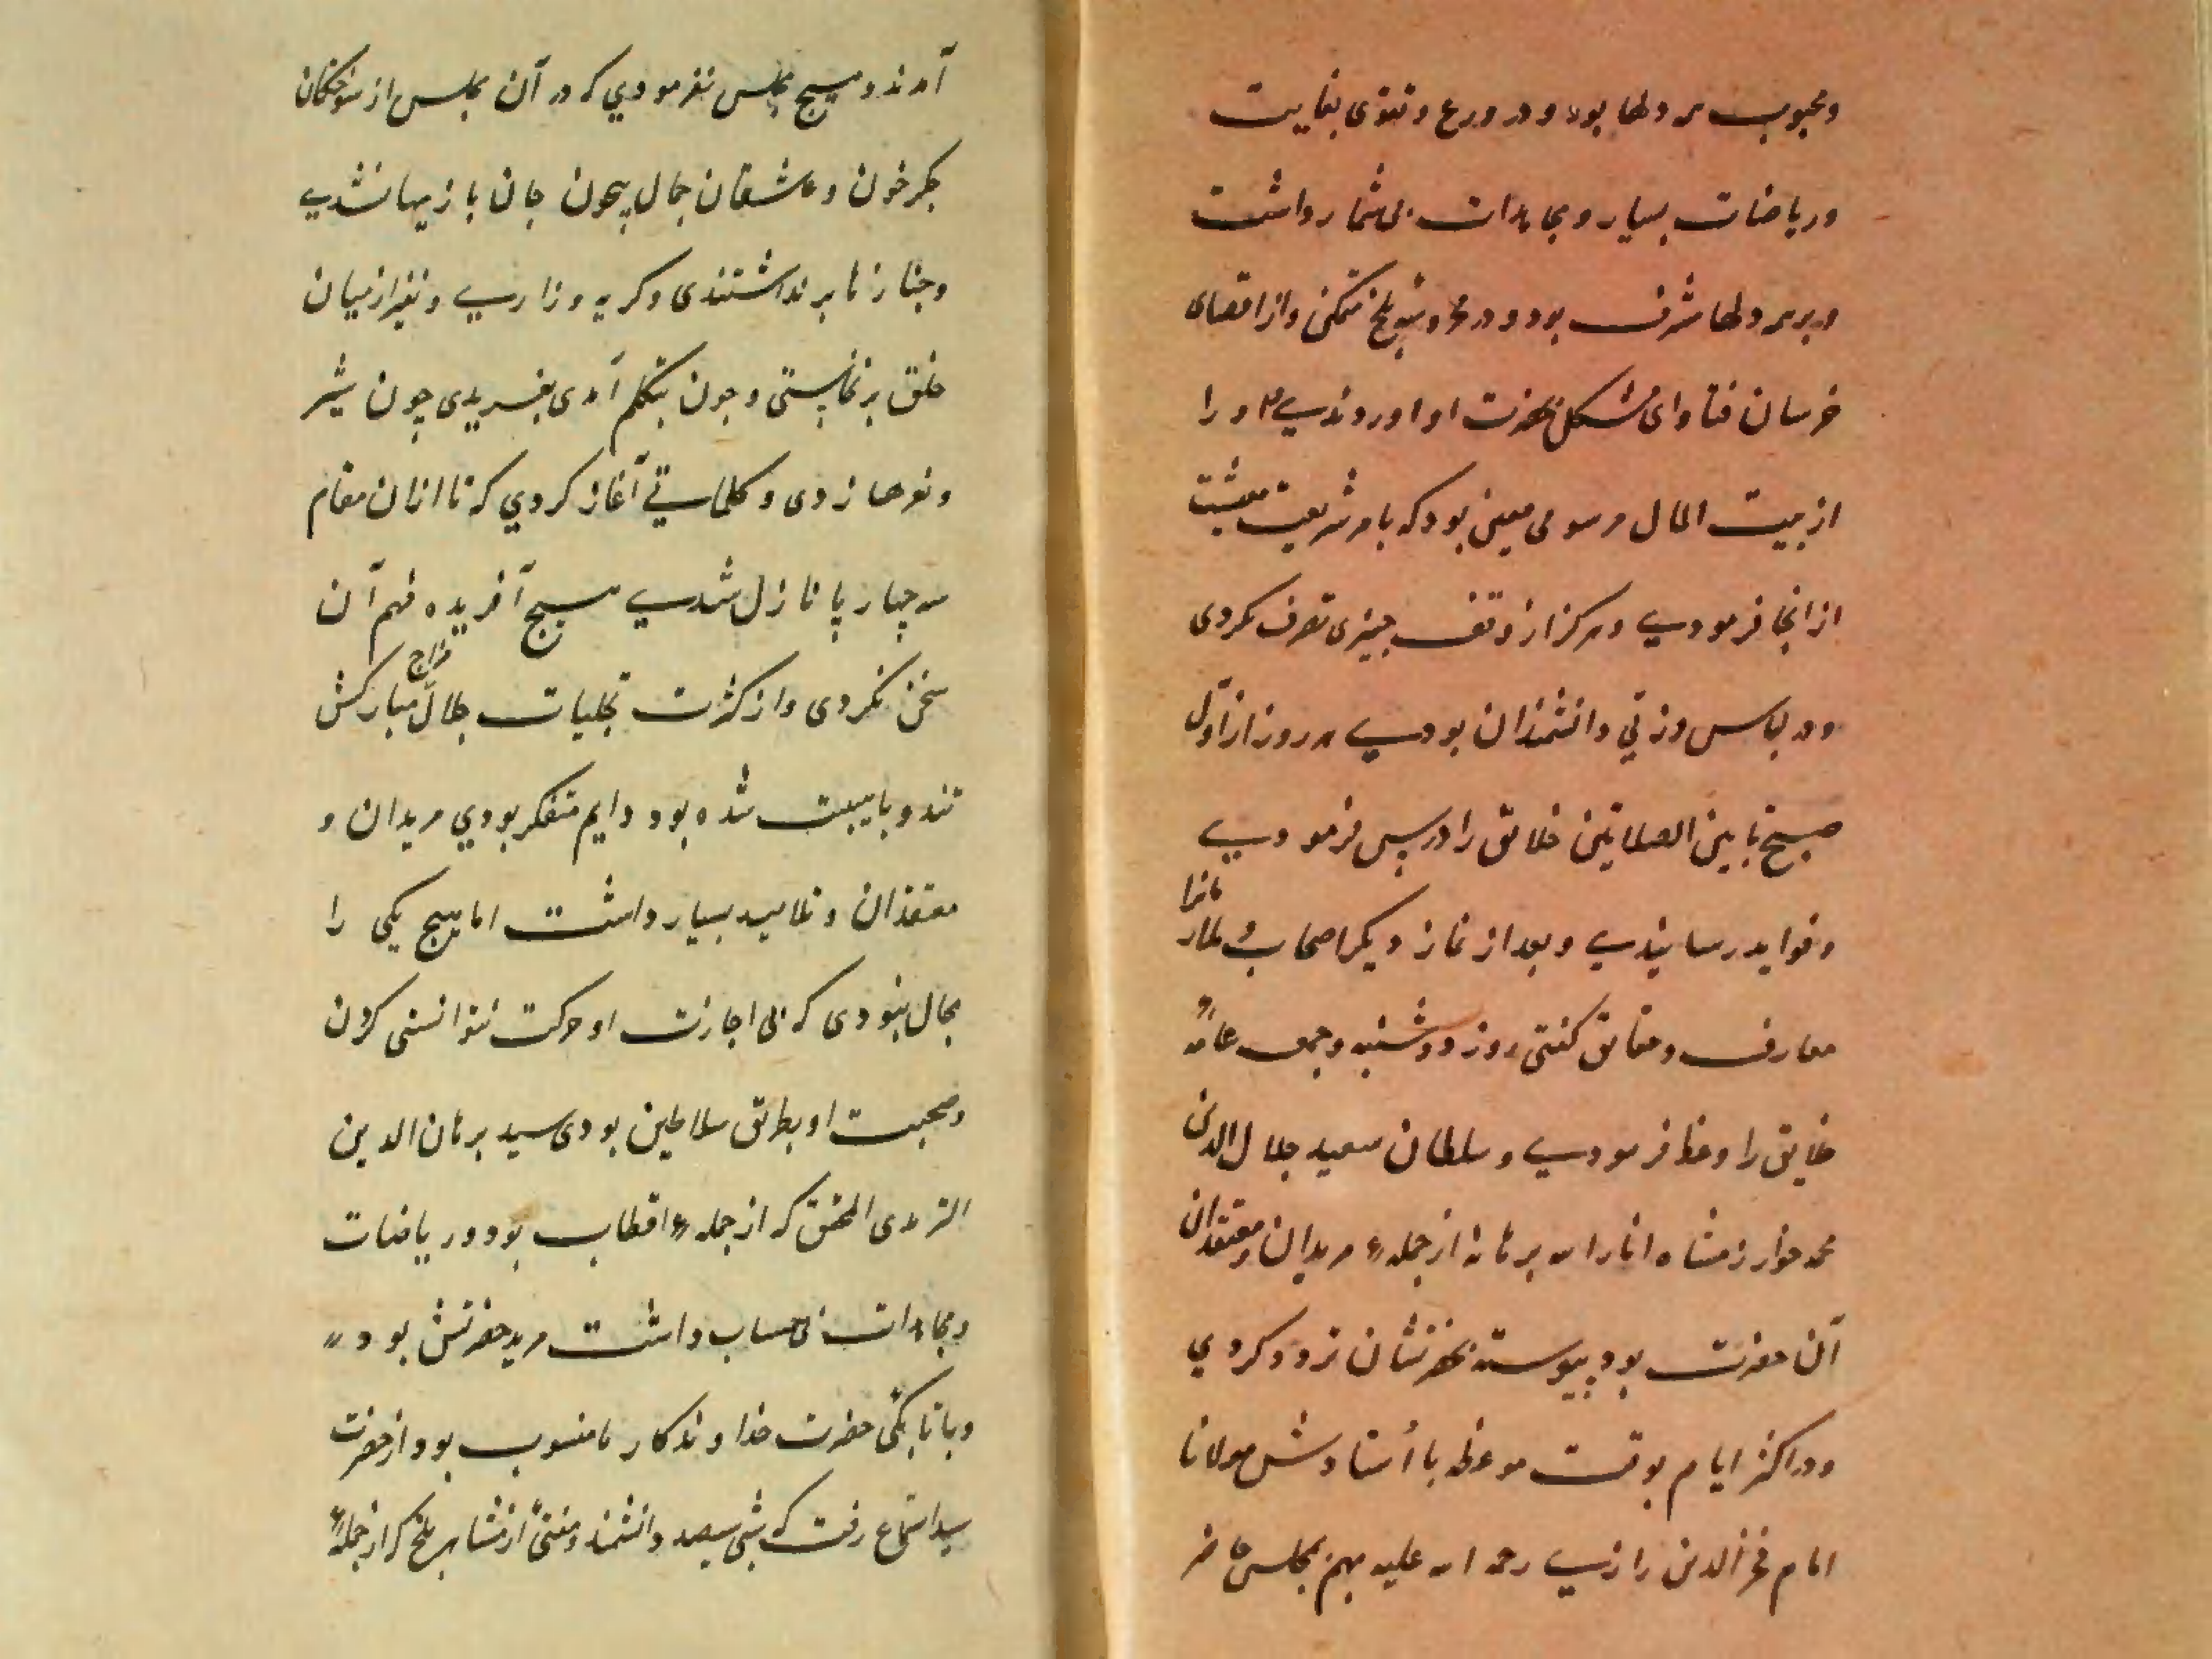 ومحبوب همه دلها بود و در ورع و تقوی بغایت
وریاضات بسیار و مجاهدات بی شمار داشت
و بر سر دلها مشرف بود و در محروسهٔ بلخ متمکن و از اقصای
خرسان فتاوای مشکل بحضرت او اوردندی و او را
از بیت المال مرسومی معین بود که بامر شریعت معیشت
از انجا فرمودی و هرکز از وقف چیزی تصرف نکردی
و در لباس وزی دانشمندان بودی هر روز از اول
صبح تا بین الصلاتین خلایق را درس فرمودی
و فواید رسانیدی و بعد از نماز دیکر اصحاب و ملازمانرا
معارف و حقایق کفتی روز دوشنبه و جمعه عامهٔ
خلایق را وعظ فرمودی و سلطان سعید جلال الدین
محمد خوارزمشاه انار الله برهانه از جملهٔ مریدان و معتقدان
آن حضرت بود پیوسته بحضرتشان تردد کردی
و در اکثر ایام بوقت موعظه با أستادش مولانا
امام فخر الدین رازی رحمه الله علیه بهم بمجلس حاضر
آمدند و هیچ مجلس نفرمودی که در آن مجلس از سوختکان
جکر خون و عاشقان جمال بیچون جان بازیها نشدی
و جنازها برنداشتندی و کریه و زاری و نفیر از میان
خلق برنخاستی و چون بتکلم آمدی بغریدی چون شیر
و نعرها زدی و کلماتی آغاز کردی که تا از ان مقام
سه چهار پا نازل شدی هیچ آفریده فهم آن
سخن نکردی و از کثرت تجلیات جلال مزاج مبارکش
تند و باهیبت شده بود دایم متفکر بودی مریدان و
معتقدان و تلامید بسیار داشت اما هیچ یکی را
مجال نبودی که بی اجازت او حرکت نتوانستی کردن
و صحبت او بطریق سلاطین بودی سید برهان الدین
الترمدی المحقق که از جملهٔ اقطاب بود و ریاضات
و مجاهدات بی حساب داشت مرید حضرتش بود
و باتابکی حضرت خداوندکار ما منسوب بود از حضرت
سید استماع رفت که شبی سیصد دانشمند و مفتی از مشاهیر بلخ که از جملهٔ